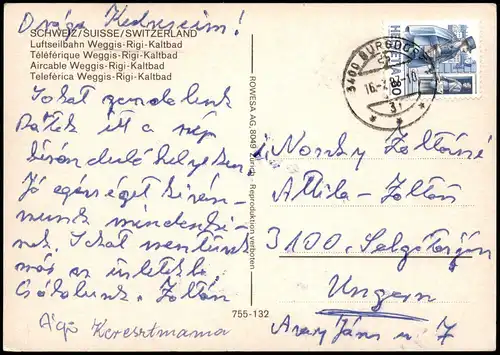 Drága Kedveseim!
SCHWEIZ/SUISSE/SWITZERLAND
Luftseilbahn Weggis-Rigi-Kaltbad
Téléférique Weggis-Rigi-Kaltbad
Aircable Weggis-Rigi-Kaltbad
Teleférica Weggis-Rigi-Kaltbad
Sokat gondolunk
Rátok itt a szép
kiránduló helyeken
Jó egészséget kíván-
unk mindenki-
nek. Sokat mentünk
már
Csókolunk. Zoltán
Ági Keresztmama
ROWESA AG, 8049 Zürich - Reproduktion verboten
755-132
HELVETIA 80
3400 BURGDORF
Norky Zoltánné
Attila - Zoltán
3100. Salgótarján
Ungarn
Arany János u. 7